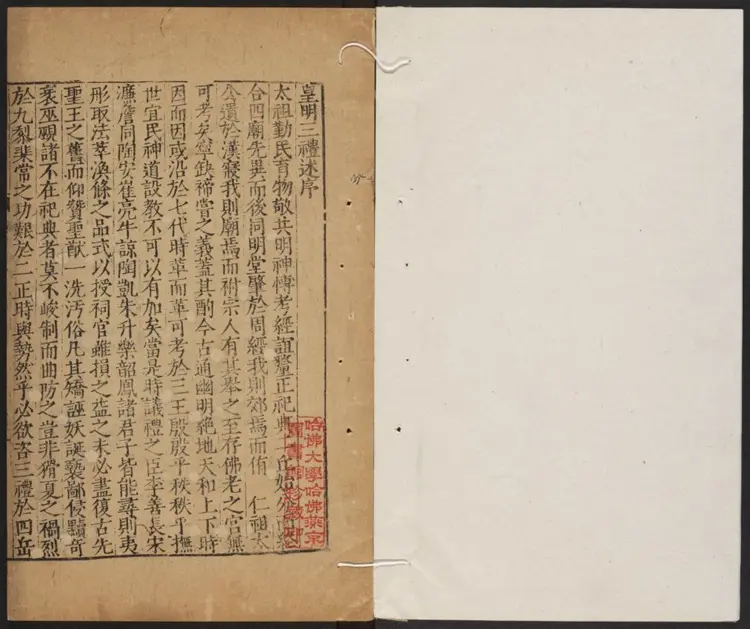 皇明三禮述序
太祖勤民育物敬共明神慱考經誼釐正祀典丘始分而終
合四廟先異而後同明堂肇於周經我則郊焉而侑 仁祖太
食遺於漢寢我則廟焉而祔宗人有其舉之至存佛老之宮無
可考矣寧缺禘嘗之義蓋其酌今古通幽明絶地天和上下時
因而因或沿於七代時革而革可考於三王殷殷乎秩秩乎撫
世宜民神道設教不可以有加矣當是時議禮之臣李善長宋
濂詹同陶安崔亮牛諒陶凱朱升樂韶鳳諸君子皆能尋則夷
形取法萃渙條之品式以授祠官雖損之益之未必盡復古先
聖王之舊而仰贊聖猷一洗汚俗凡其矯誣妖誕褻鄙侵黷竒
衺巫覡諸不在祀典者莫不峻制而曲防之豈非猾夏之禍烈
於九黎棐常之功艱於二正時與勢然乎必欲咨三禮於四岳
哈佛大學哈佛燕京
圖書館珍藏印